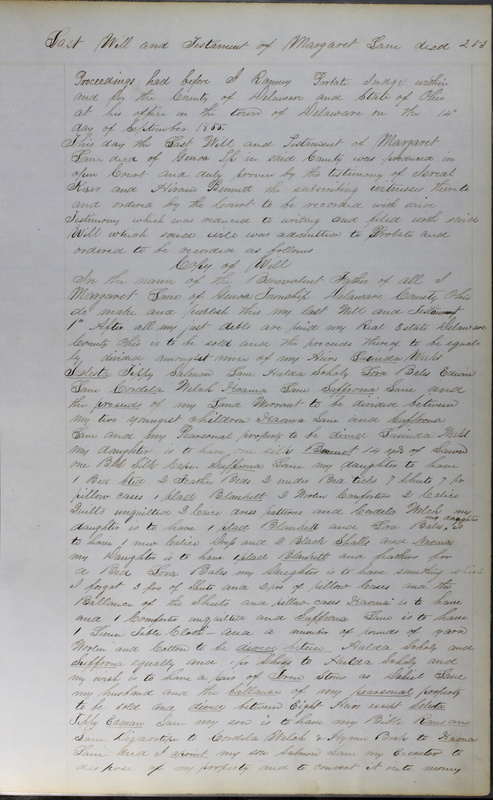 Last Will and Testament of Margaret Lane decd 253
Proceedings had before J Ranney Probate Judge within
and for the County of Delaware and State of Ohio
at his office in the town of Delaware on the 14
day of September 1855.
This day the Last Will and Testament of Margaret
Lane decd of Genoa Tp in said County was produced in
open Court and duly proven by the testimony of
and Hiram Bennett the subscribing witnesses thereto
and ordered by the Court to be recorded with said
Testimony which was reduced to writing and filed with said
Will which said will was admitted to Probate and
ordered to be recorded as follows
Copy of Will
In the name of the Benevolent Father of all I
Margaret Lane of Genoa Township Delaware County Ohio
do make and publish this my last Will and Testament
1st After all my just debts are paid my Real Estate Delaware
County Ohio is to be sold and the proceeds thereof to be equal
ly divided amongst nine of my Heirs Lucinda Webb
Selesta Tippy Salmon Lane Hulda Scholy Zora Bales Edwin
Lane Cordela Welch Naoma Lane Suffrona Lane and
the proseeds of my Land Warrant to be divided between
my two youngist children Naoma Lane and Suffrona
Lane and my Pearsonal property to be divied Lucinda Webb
my daughter is to have one silk Bonnet 14 yds of Lawn
one Blk Silk Suffrona Lane my daughter to have
1 Bed Sted 2 Feather Beds 2 under Bed ticks 7 Sheets 7 pr
pillow cases 1 plad Blankett 2 Wolen Comforters 2 Calico
Quilts unquilted 2 Calico dress patterns and Cordela Welch my
daughter is to have 1 plad Blankett and Zora Bales my daughter is
to have 1 new Calico and 2 Black Shalls and Naoma
my Daughter is to have 1 plad Blankett and feathers for
a Bed Zora Bales my Daughter is to have which
I forgat 3 prs of Sheets and 2 prs of pillow Cases and the
Ballance of the Sheets and pillow cases Naoma is to have
and 1 Comforter unquilted and Suffrona Lane is to have
1 Linen Table Cloth and a number of pounds of yarn
Wolen and Cotton to be divied between Hulda Scholy and
Suffrona equally and 1 pr Shoes to Hulda Scholy and
my wish is to have a pair of Tom Stons as Lane
my husband and the ballance of my pearsonal property
to be sold and divied between Eight Heirs except Selesta
Tippy Edman Lane my son is to have my Bible
Lane to Cordela Welch & Hymn Book to Naoma
Lane And I apoint my son Salmon Lane my Executor to
dispose of my property and to convert it into money